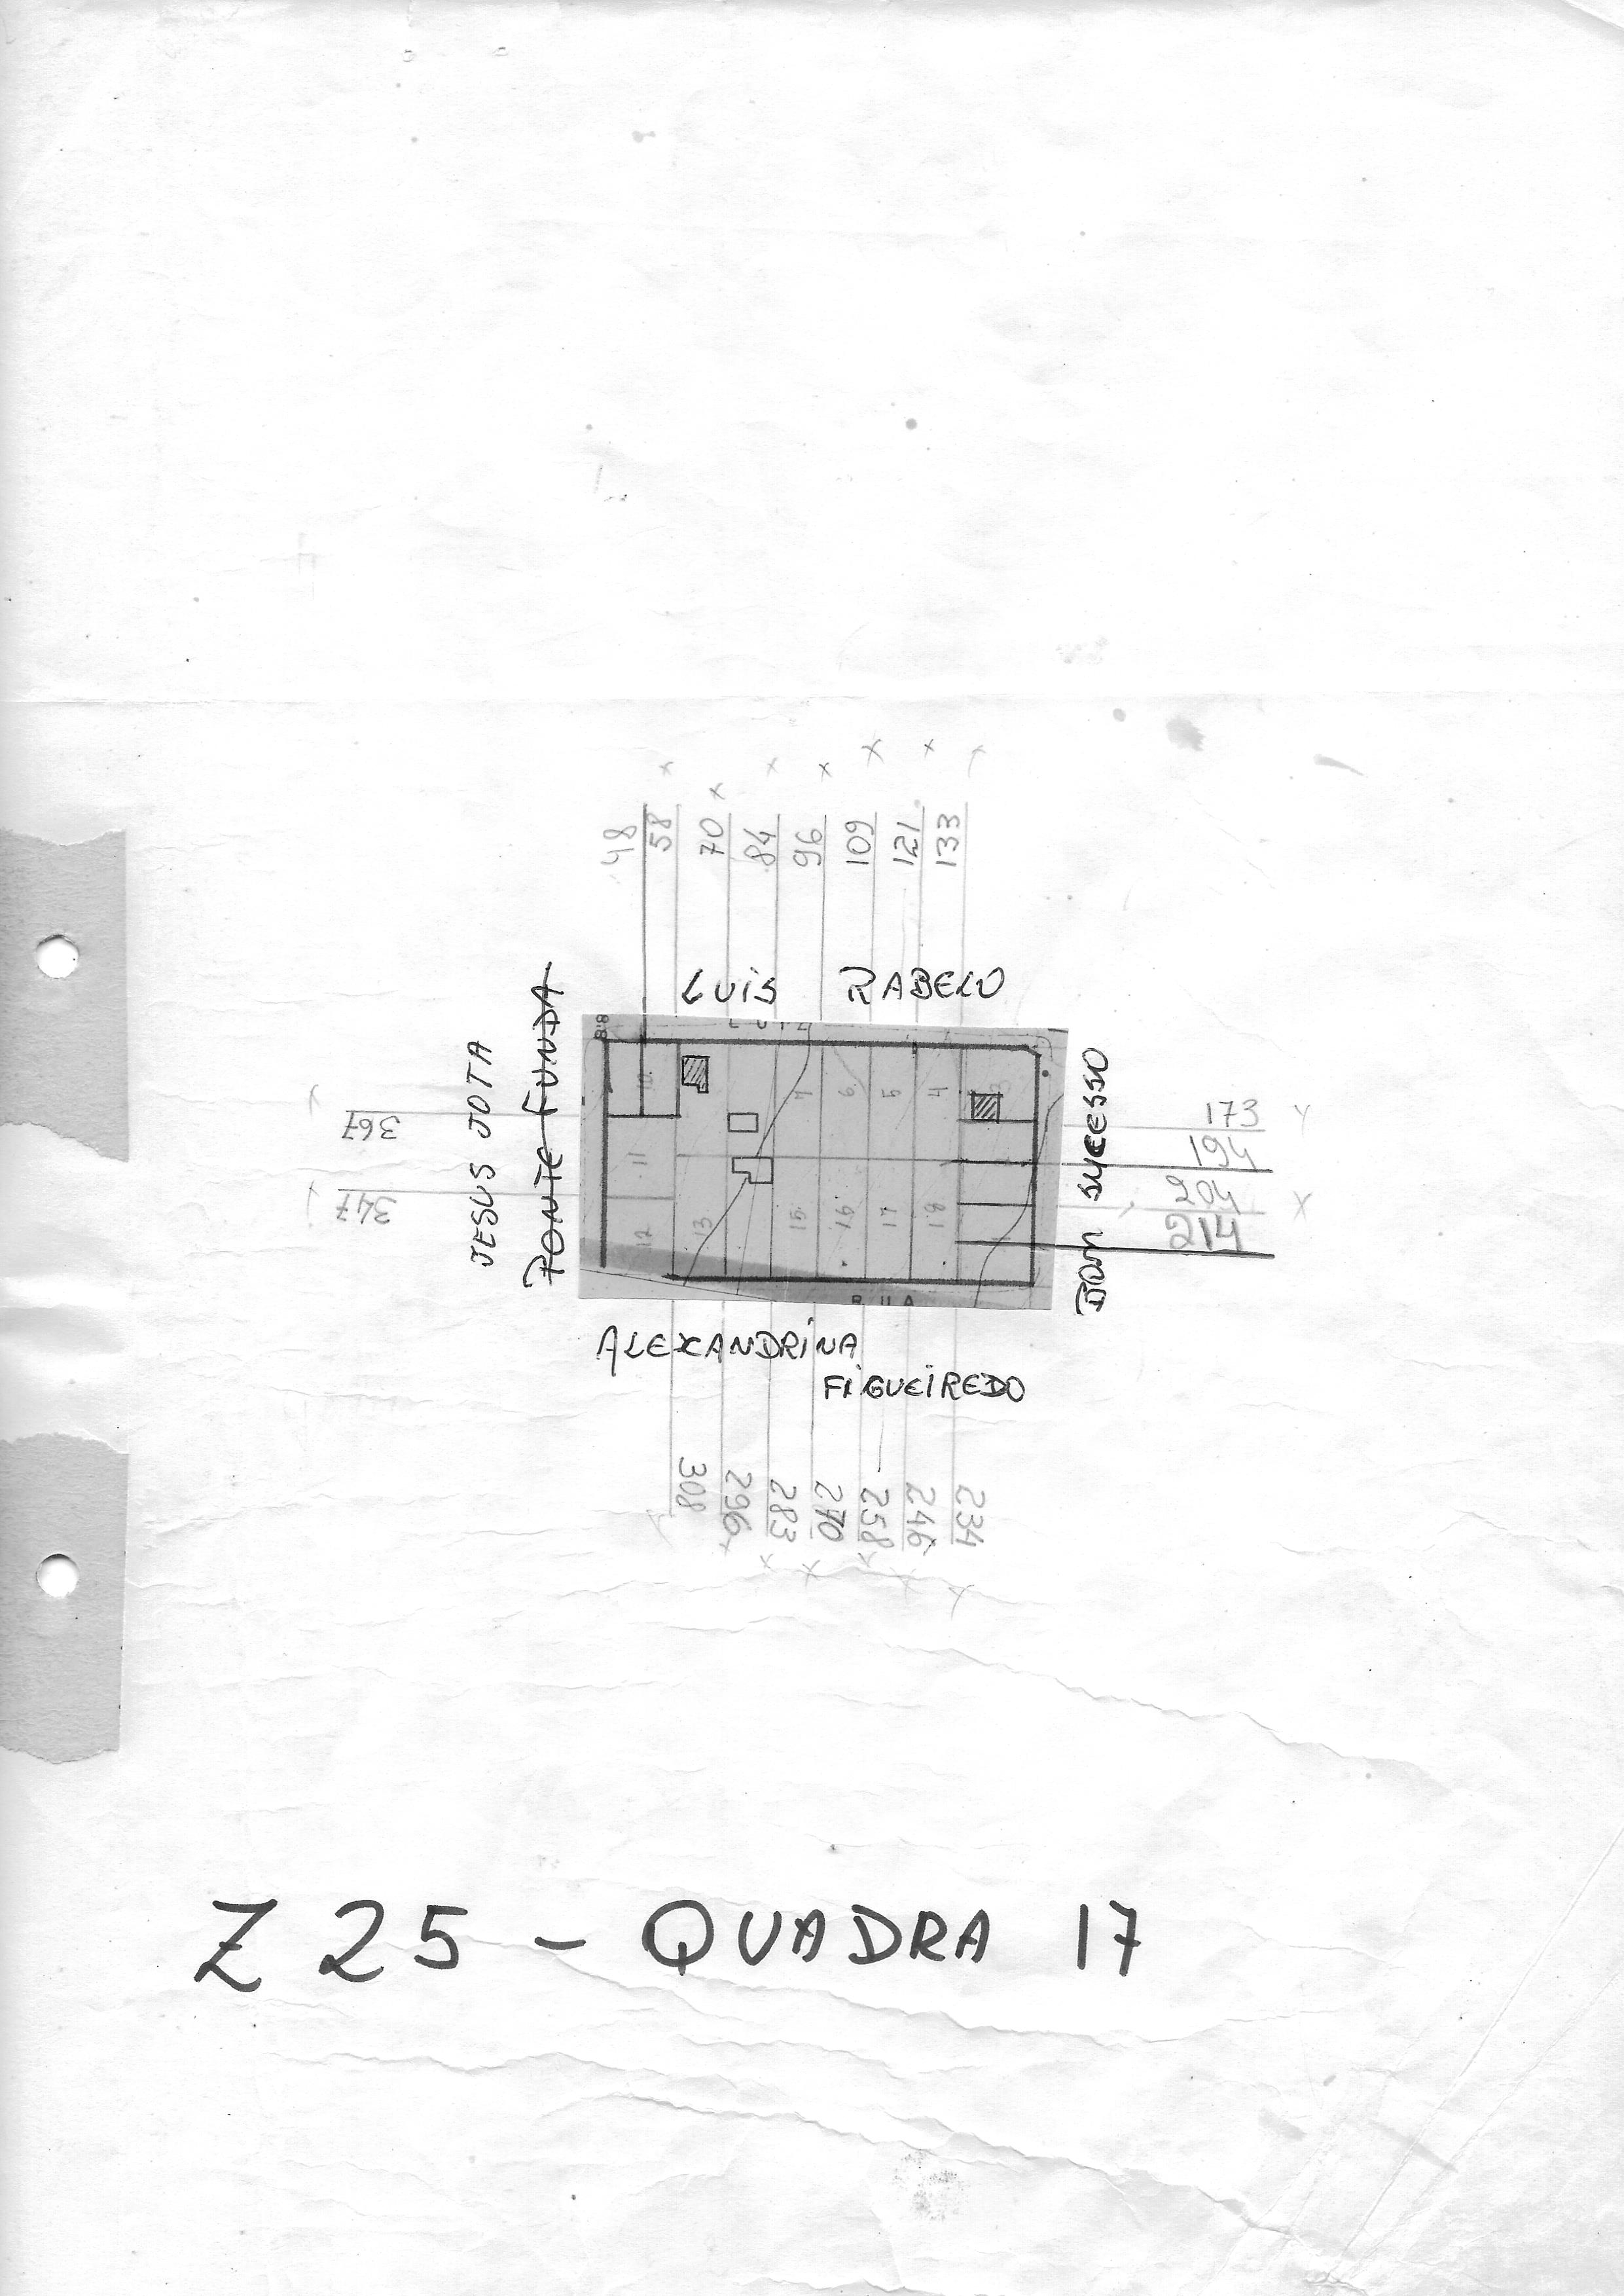 48
58
70
84
96
109
121
133
LUIS RABELO
JESUS JOTA
PONTE FUNDA
BOM SUCESSO
367
347
173
194
204
214
10
11
12
13
15
16
17
18
6
5
4
RUA
ALEXANDRINA
FIGUEIREDO
308
296
283
270
258
246
234
Z 25 - QUADRA 17